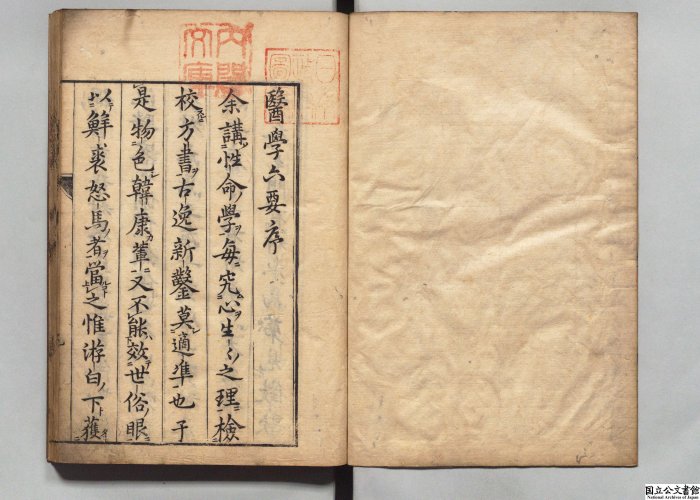 醫學六要序
余講性命學每究心生〻之理檢
校方書古逸新鑿莫適準也于
是物色韓康輩又不能效世俗眼
以鮮裘怒馬者當之惟游白下獲
內閣文庫
国立公文書館
National Archives of Japan